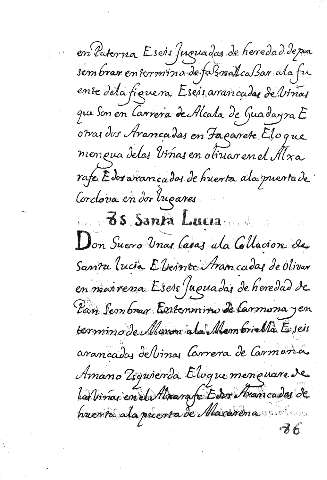 en Paterna E seis Juguadas de heredad de pan
sembrar en termino de facnalcasar ala fu
ente dela figuera E seis arançadas de Viñas
que son en Carrera de Alcala de Guadayra E
otras dos Arancadas en Tagarete Elo que
mengua delas Viñas en olivar en el Alxa
rafe E dos arançadas de huerta ala puerta de
Cordova en dos lugares
85 Santa Lucia
Don Suero Unas Casas ala Collacion de
Santa Lucia E Veinte Arancadas de olivar
en mairena E seis Juguadas de heredad de
Pan Sembrar En termino de Carmona y en
termino de Moron ala Membrilla E seis
arancadas de Vinas Carrera de Carmona
Amano Izquierda Elo que menguare de
las Viñas en el Alxarafe E dos Arancadas de
huerta ala puerta de Macarena
86